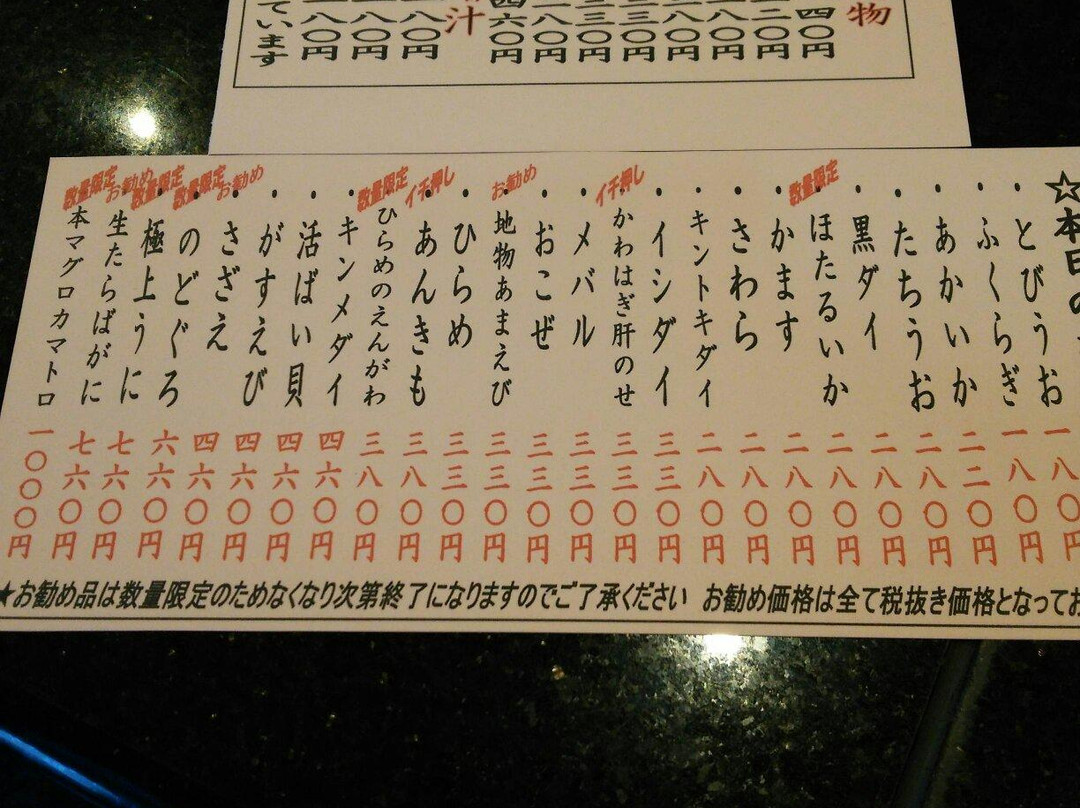 物
四〇円
二〇円
八〇円
八〇円
三〇円
三〇円
八〇円
四六〇円
汁
八〇円
八〇円
八〇円
ています
☆本日の
・とびうお 一八〇円
・ふくらぎ 一八〇円
・あかいか 二二〇円
・たちうお 二八〇円
・黒ダイ 二八〇円
数量限定
・ほたるいか 二八〇円
・かます 二八〇円
・さわら 二八〇円
・キントキダイ 二八〇円
・イシダイ 三三〇円
イチ押し
・かわはぎ肝のせ 三三〇円
・メバル 三三〇円
・おこぜ 三三〇円
お勧め
・地物あまえび 三三〇円
・ひらめ 三三〇円
イチ押し
・あんきも 三八〇円
数量限定
・ひらめのえんがわ 三八〇円
・キンメダイ 四六〇円
・活ばい貝 四六〇円
・がすえび 四六〇円
お勧め
・さざえ 四六〇円
数量限定
・のどぐろ 六六〇円
数量限定
・極上うに 七六〇円
お勧め
・生たらばがに 七六〇円
数量限定
・本マグロカマトロ 一〇〇〇円
★お勧め品は数量限定のためなくなり次第終了になりますのでご了承ください お勧め価格は全て税抜き価格となってお